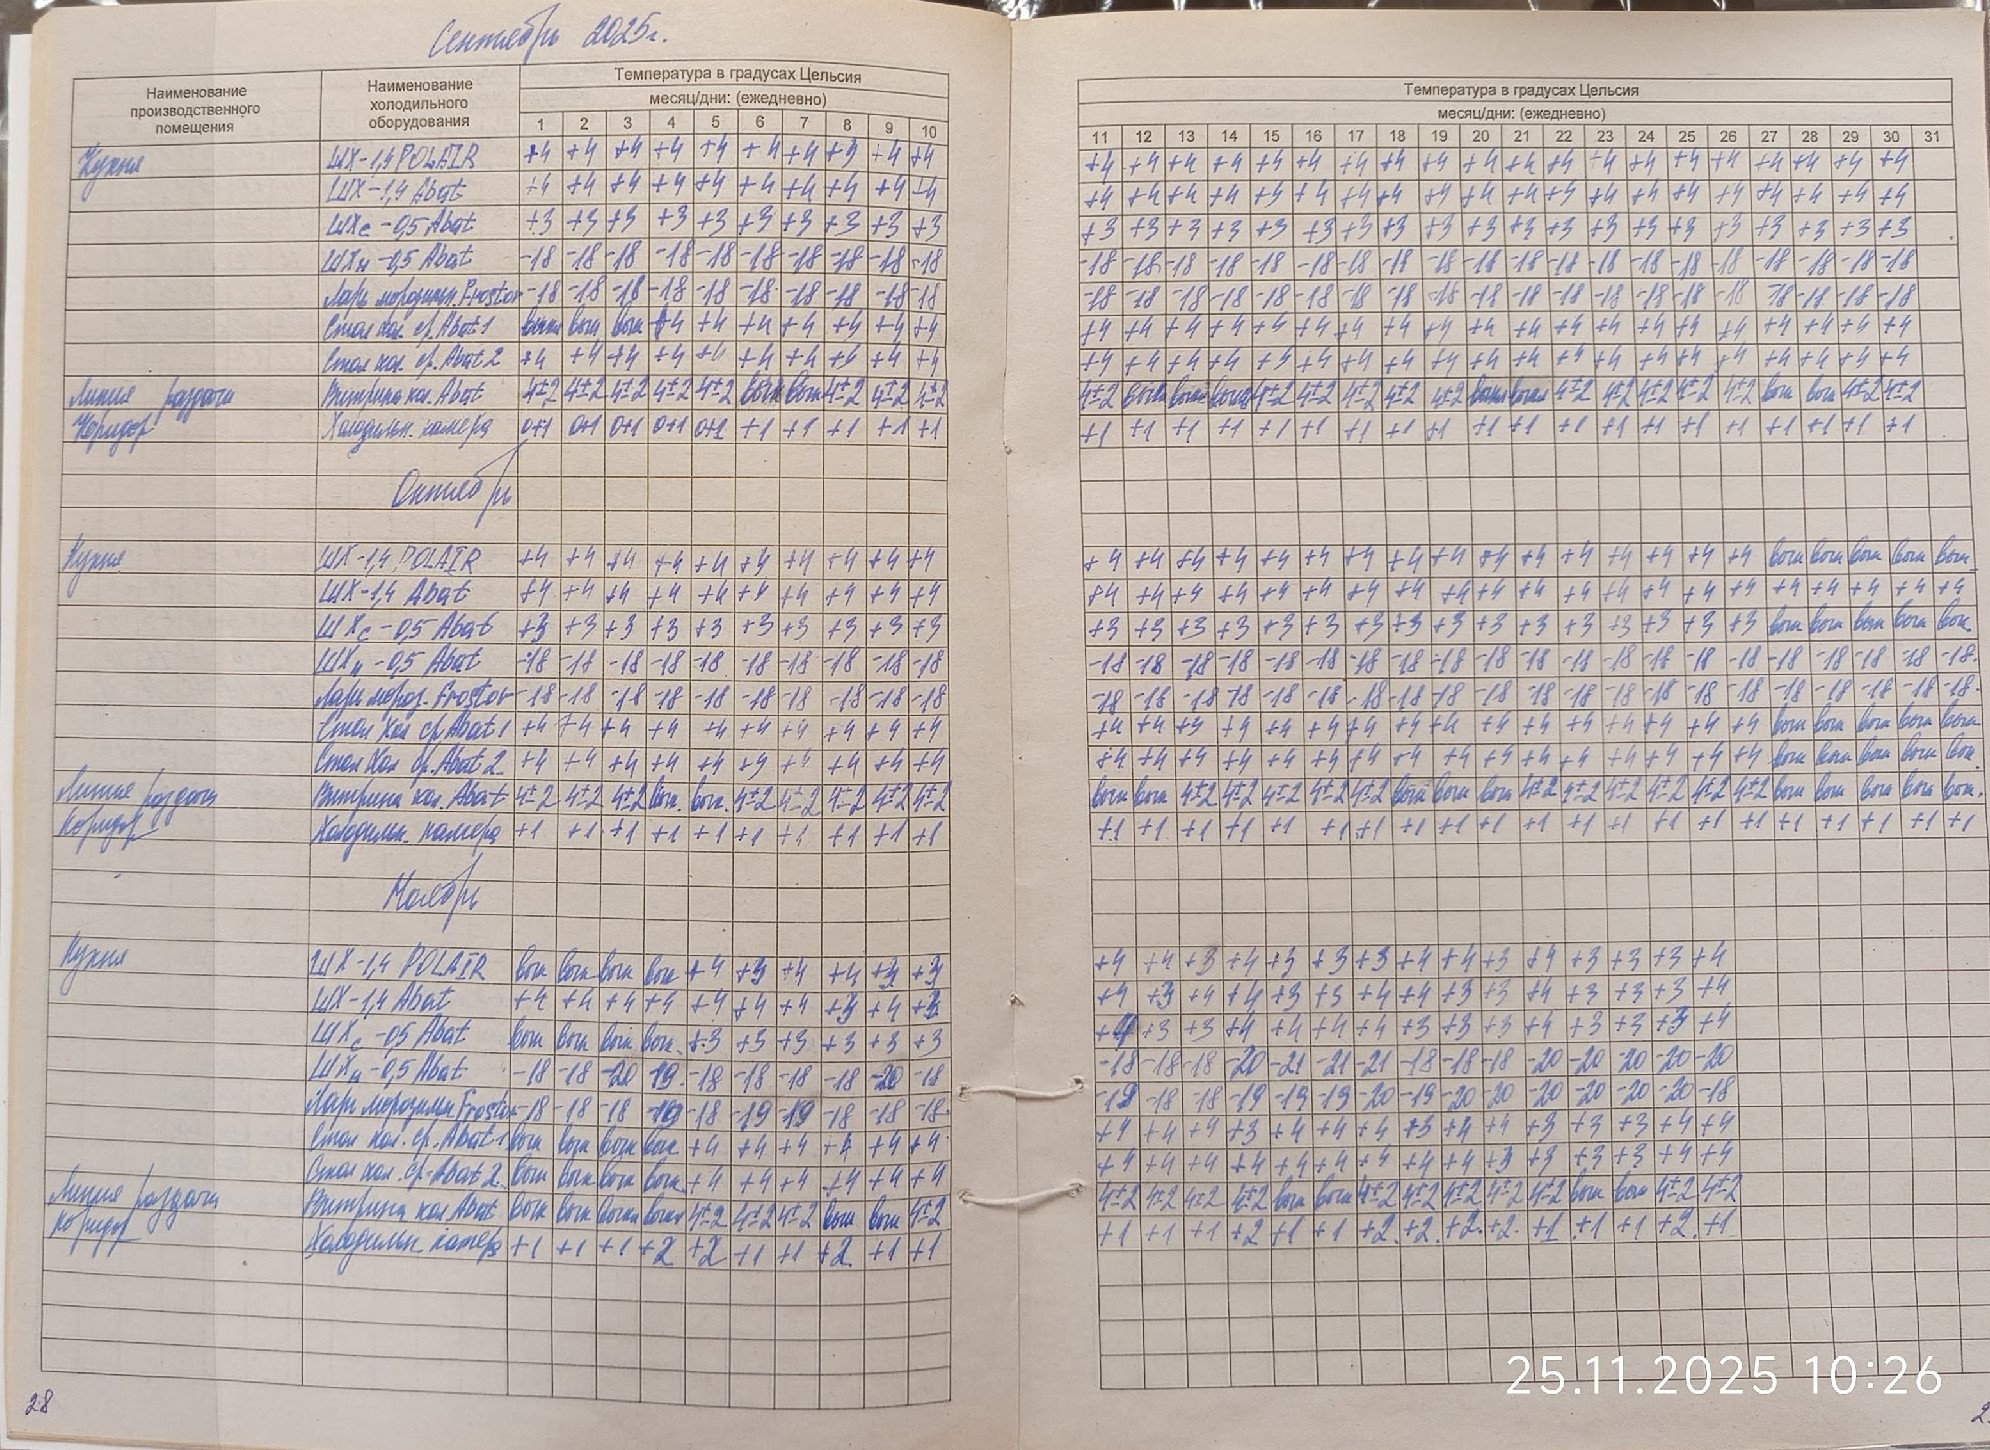 Сентябрь 2025г.
Наименование производственного помещения
Наименование холодильного оборудования
Температура в градусах Цельсия
месяц/дни: (ежедневно)
1 2 3 4 5 6 7 8 9 10
Температура в градусах Цельсия
месяц/дни: (ежедневно)
11 12 13 14 15 16 17 18 19 20 21 22 23 24 25 26 27 28 29 30 31
Кухня ШХ-1,4 POLAIR +4 +4 +4 +4 +4 +4 +4 +3 +4 +4 +4 +4 +4 +4 +4 +4 +4 +4 +4 +4 +4 +4 +4 +4 +4 +4 +4 +4 +4 +4
ШХ-1,4 Abat +4 +4 +4 +4 +4 +4 +4 +4 +4 +4 +4 +4 +4 +4 +3 +4 +4 +4 +4 +4 +4 +3 +4 +4 +4 +4 +4 +4 +4 +4
ШХс-0,5 Abat +3 +3 +3 +3 +3 +3 +3 +3 +3 +3 +3 +3 +3 +3 +3 +3 +3 +3 +3 +3 +3 +3 +3 +3 +3 +3 +3 +3 +3 +3
ШХн-0,5 Abat -18 -18 -18 -18 -18 -18 -18 -18 -18 -18 -18 -18 -18 -18 -18 -18 -18 -18 -18 -18 -18 -18 -18 -18 -18 -18 -18 -18 -18 -18
Ларь морозильн. Frostor -18 -18 -18 -18 -18 -18 -18 -18 -18 -18 -18 -18 -18 -18 -18 -18 -18 -18 -18 -18 -18 -18 -18 -18 -18 -18 -18 -18 -18 -18
Стол хол. ср. Abat 1 выкл выкл выкл +4 +4 +4 +4 +4 +4 +4 +4 +4 +4 +4 +4 +4 +4 +4 +4 +4 +4 +4 +4 +4 +4 +4 +4 +4 +4 +4
Стол хол. ср. Abat 2 +4 +4 +4 +4 +4 +4 +4 +3 +4 +4 +4 +4 +4 +4 +3 +4 +4 +4 +4 +4 +4 +4 +4 +4 +4 +4 +4 +4 +4 +4
Линия раздачи Витрина хол. Abat 4±2 4±2 4±2 4±2 4±2 выкл выкл 4±2 4±2 4±2 4±2 выкл выкл выкл 4±2 4±2 4±2 4±2 4±2 выкл выкл 4±2 4±2 4±2 4±2 4±2 выкл выкл 4±2 4±2
Коридор Холодильн. камера 0+1 0+1 0+1 0+1 0+1 +1 +1 +1 +1 +1 +1 +1 +1 +1 +1 +1 +1 +1 +1 +1 +1 +1 +1 +1 +1 +1 +1 +1 +1 +1
Октябрь
Кухня ШХ-1,4 POLAIR +4 +4 +4 +4 +4 +4 +4 +4 +4 +4 +4 +4 +4 +4 +4 +4 +4 +4 +4 +4 +4 +4 +4 +4 +4 +4 выкл выкл выкл выкл выкл
ШХ-1,4 Abat +4 +4 +4 +4 +4 +4 +4 +4 +4 +4 +4 +4 +4 +4 +4 +4 +4 +4 +4 +4 +4 +4 +4 +4 +4 +4 +4 +4 +4 +4 +4
ШХс-0,5 Abat +3 +3 +3 +3 +3 +3 +3 +3 +3 +3 +3 +3 +3 +3 +3 +3 +3 +3 +3 +3 +3 +3 +3 +3 +3 +3 выкл выкл выкл выкл выкл.
ШХн-0,5 Abat -18 -18 -18 -18 -18 -18 -18 -18 -18 -18 -18 -18 -18 -18 -18 -18 -18 -18 -18 -18 -18 -18 -18 -18 -18 -18 -18 -18 -18 -18 -18.
Ларь мороз. Frostor -18 -18 -18 -18 -18 -18 -18 -18 -18 -18 -18 -18 -18 -18 -18 -18 -18 -18 -18 -18 -18 -18 -18 -18 -18 -18 -18 -18 -18 -18 -18.
Стол хол ср. Abat 1 +4 +4 +4 +4 +4 +4 +4 +4 +4 +4 +4 +4 +3 +4 +4 +4 +4 +4 +4 +4 +4 +4 +4 +4 +4 +4 выкл выкл выкл выкл выкл
Стол Хол ср. Abat 2. +4 +4 +4 +4 +4 +4 +4 +4 +4 +4 +4 +4 +4 +4 +4 +4 +4 +4 +4 +4 +4 +4 +4 +4 +4 +4 выкл выкл выкл выкл выкл.
Линия раздачи Витрина хол. Abat 4±2 4±2 4±2 выкл. выкл. 4±2 4±2 4±2 4±2 4±2 выкл выкл 4±2 4±2 4±2 4±2 4±2 выкл выкл выкл 4±2 4±2 4±2 4±2 4±2 4±2 выкл выкл выкл выкл выкл.
Коридор Холодильн. камера +1 +1 +1 +1 +1 +1 +1 +1 +1 +1 +1 +1 +1 +1 +1 +1 +1 +1 +1 +1 +1 +1 +1 +1 +1 +1 +1 +1 +1 +1 +1
Ноябрь
Кухня ШХ-1,4 POLAIR выкл выкл выкл выкл +4 +3 +4 +4 +3 +3 +4 +4 +3 +4 +3 +3 +3 +4 +4 +3 +4 +3 +3 +3 +4
ШХ-1,4 Abat +4 +4 +4 +4 +4 +4 +4 +3 +4 +3 +4 +3 +4 +4 +3 +3 +4 +4 +3 +3 +4 +3 +3 +3 +4
ШХс-0,5 Abat выкл выкл выкл выкл. +3 +3 +3 +3 +3 +3 +4 +3 +3 +4 +4 +4 +4 +3 +3 +3 +4 +3 +3 +3 +4
ШХн-0,5 Abat -18 -18 -20 -19. -18 -18 -18 -18 -20 -18 -18 -18 -18 -20 -21 -21 -21 -18 -18 -18 -20 -20 -20 -20 -20
Ларь морозильн Frostor -18 -18 -18 -19 -18 -19 -19 -18 -18 -18. -19 -18 -18 -19 -19 -19 -20 -19 -20 -20 -20 -20 -20 -20 -18
Стол хол. ср. Abat 1 выкл выкл выкл выкл +4 +4 +4 +4 +4 +4 +4 +4 +4 +3 +4 +4 +4 +3 +4 +4 +3 +3 +3 +4 +4
Стол хол. ср. Abat 2. выкл выкл выкл выкл. +4 +4 +4 +4 +4 +4 +4 +4 +4 +4 +4 +4 +4 +4 +4 +3 +3 +3 +3 +4 +4
Линия раздачи Витрина хол Abat выкл выкл выкл выкл 4±2 4±2 4±2 выкл выкл 4±2 4±2 4±2 4±2 4±2 выкл выкл 4±2 4±2 4±2 4±2 4±2 выкл выкл 4±2 4±2
коридор Холодильн. камера +1 +1 +1 +2 +2 +1 +1 +2. +1 +1 +1 +1 +1 +2 +1 +1 +2. +2. +2. +2. +1 +1 +1 +2. +1
28
25.11.2025 10:26